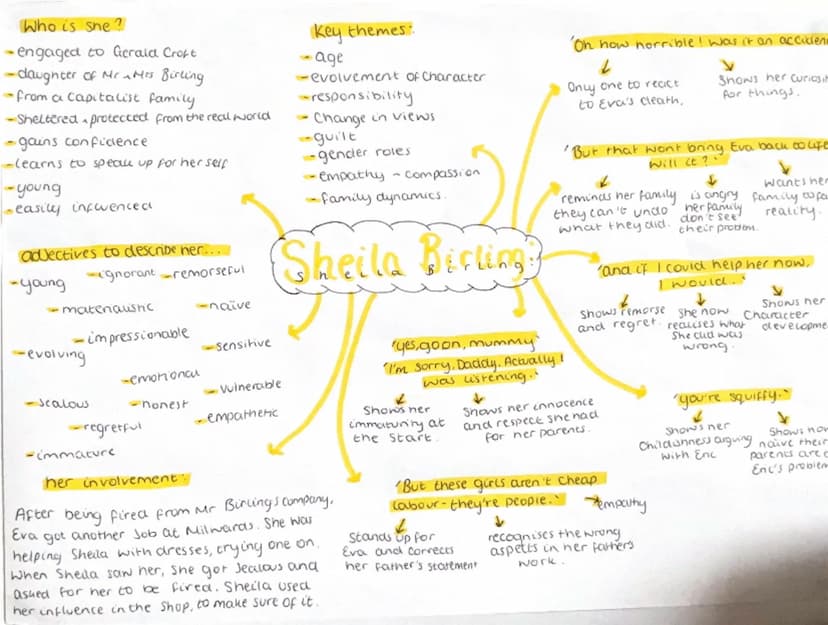 Who is she?
-engaged to Gerald Croft
-daughter of Mr & Mrs Birling
-from a Capitalist family
-Sheltered & protected from the real world
-gains confidence
-learns to speak up for her self
-young
-easily influenced
Key themes:
-age
-evolvement of Character
-responsibility
-Change in views
-guilt
-gender roles
-empathy - compassion
-family dynamics.
'Oh how horrible! Was it an acciden
Only one to react
to Eva's death.
Shows her curiosit
for things.
'But that wont bring Eva back to life
Will it?'
reminds her family
they can't undo
what they did.
is angry
her family
don't see
their problem.
Wants her
family to fa
reality.
'and if I could help her now,
I would.'
Shows remorse
and regret.
She now
realises what
She did was
wrong.
Shows her
Character
developme
'you're squiffy.'
Shows her
Childishness arguing
with Eric
Shows how
naive their
parents are o
Eric's problem
Sheila Birling:
Sheila Birling:
adjectives to describe her...
-young
-ignorant
-remorseful
-materialistic
-naive
-impressionable
-evolving
-sensitive
-emotional
-vulnerable
-jealous
-honest
-empathetic
-regretful
-immature
'yes, go on, mummy'
'I'm sorry, Daddy. Actually I
was listening.'
Shows her
immaturity at
the start.
Shows her innocence
and respect she had
for her parents.
her involvement:
After being fired from Mr Birlings company,
Eva got another Job at Milwards. She was
helping Sheila with dresses, trying one on.
When Sheila saw her, she got Jealous and
asked for her to be fired. Sheila used
her influence in the shop, to make sure of it.
'But these girls aren't cheap
labour - they're people.'
empathy
Stands up for
Eva and corrects
her father's statement
recognises the wrong
aspects in her father's
work.